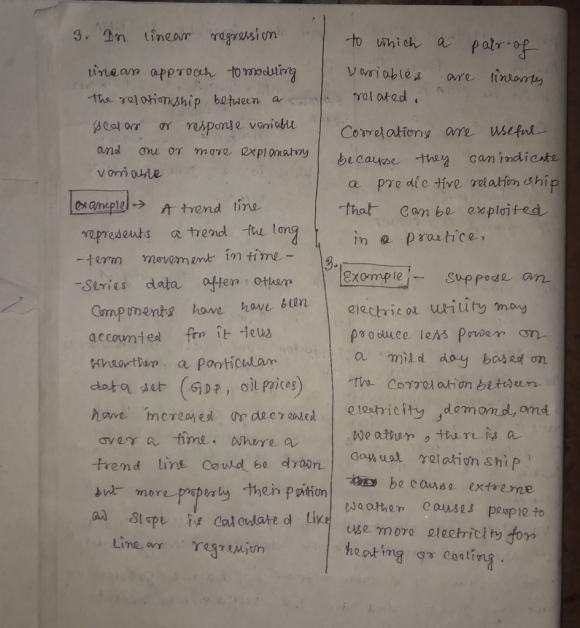 3. In linear regression
linear approach to modeling
the relationship between a
scalar or response variable
and one or more explanatory
variable
example → A trend line
represents a trend the long
-term movement in time-
-series data after other
Components have have been
accounted for it tells
whearther a particular
data set (GDP, oil prices)
have increased or decreased
over a time. where a
trend line could be drawn
but more properly their position
and slope is calculated like
Linear regression
to which a pair-of
variables are linearly
related.
Correlations are useful
because they can indicate
a predictive relationship
that can be exploited
in a practice.
3. Example :- Suppose an
electrical utility may
produce less power on
a mild day based on
the correlation between
electricity, demand, and
weather, there is a
casual relationship
because extreme
weather causes people to
use more electricity for
heating or cooling.